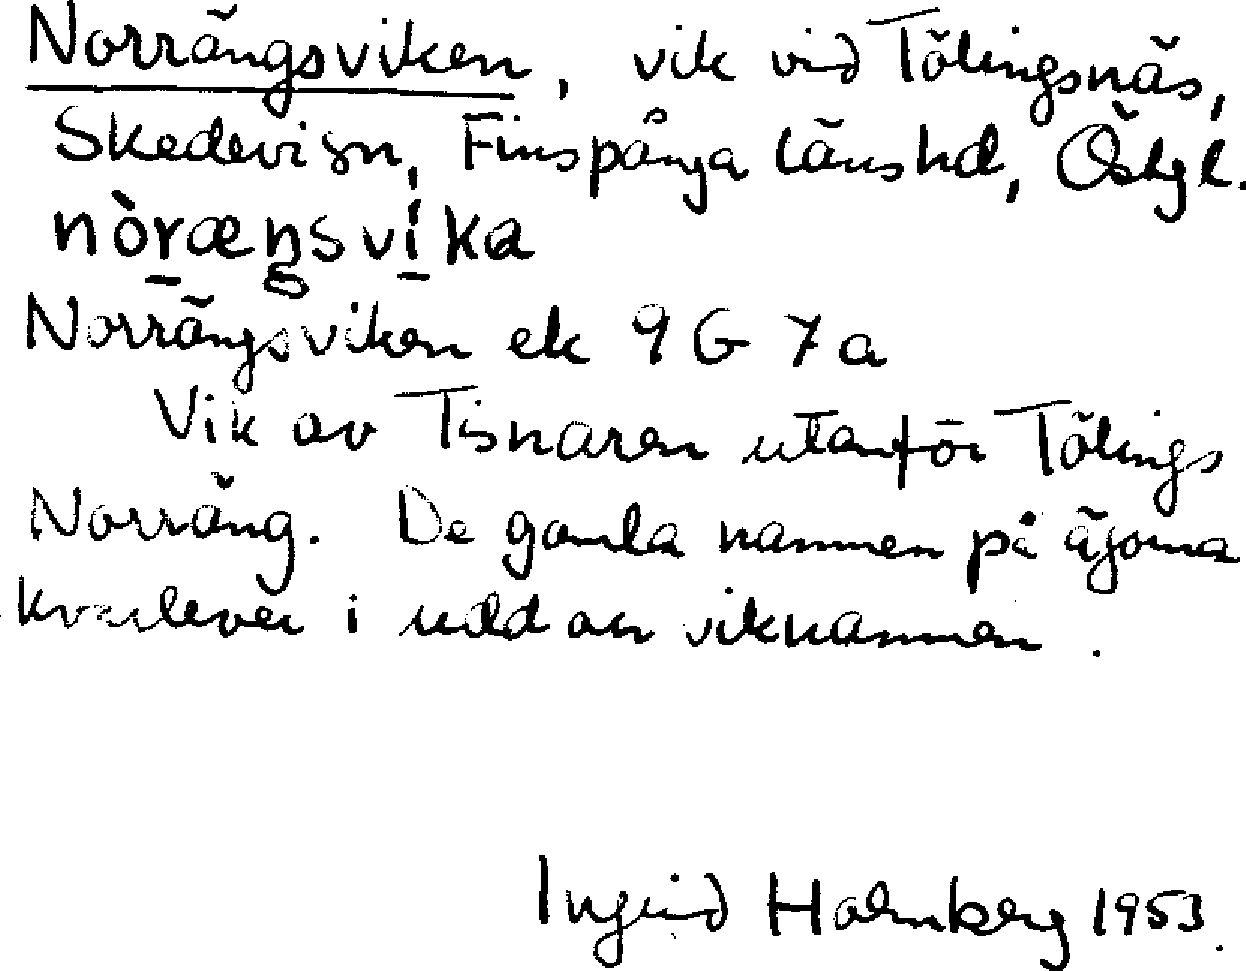 Norrängsviken, vik vid Tölingsnäs,
Skedevi sn, Finspånga länshd, Östgl.
nòræŋsvika
Norrängsviken ek 9G 7a
Vik av Tisnaren utanför Tölings
Norräng. De gamla namnen på ägorna
kvarlever i udd och viknamnen.
Ingrid Holmberg 1953.